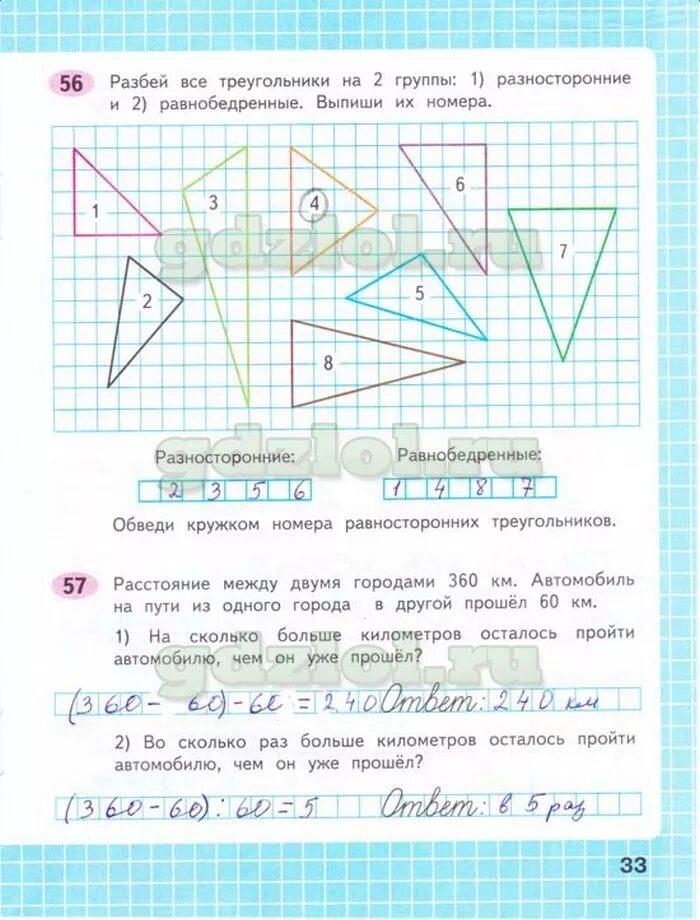 56 Разбей все треугольники на 2 группы: 1) разносторонние
и 2) равнобедренные. Выпиши их номера.
1
2
3
4
5
6
7
8
gdzlol.ru
gdzlol.ru
Разносторонние:
Равнобедренные:
2 3 5 6
1 4 8 7
Обведи кружком номера равносторонних треугольников.
57 Расстояние между двумя городами 360 км. Автомобиль
на пути из одного города в другой прошёл 60 км.
1) На сколько больше километров осталось пройти
автомобилю, чем он уже прошёл?
gdzlol.ru
(360 - 60) - 60 = 240 Ответ: 240 км
2) Во сколько раз больше километров осталось пройти
автомобилю, чем он уже прошёл?
(360 - 60) : 60 = 5 Ответ: в 5 раз
33